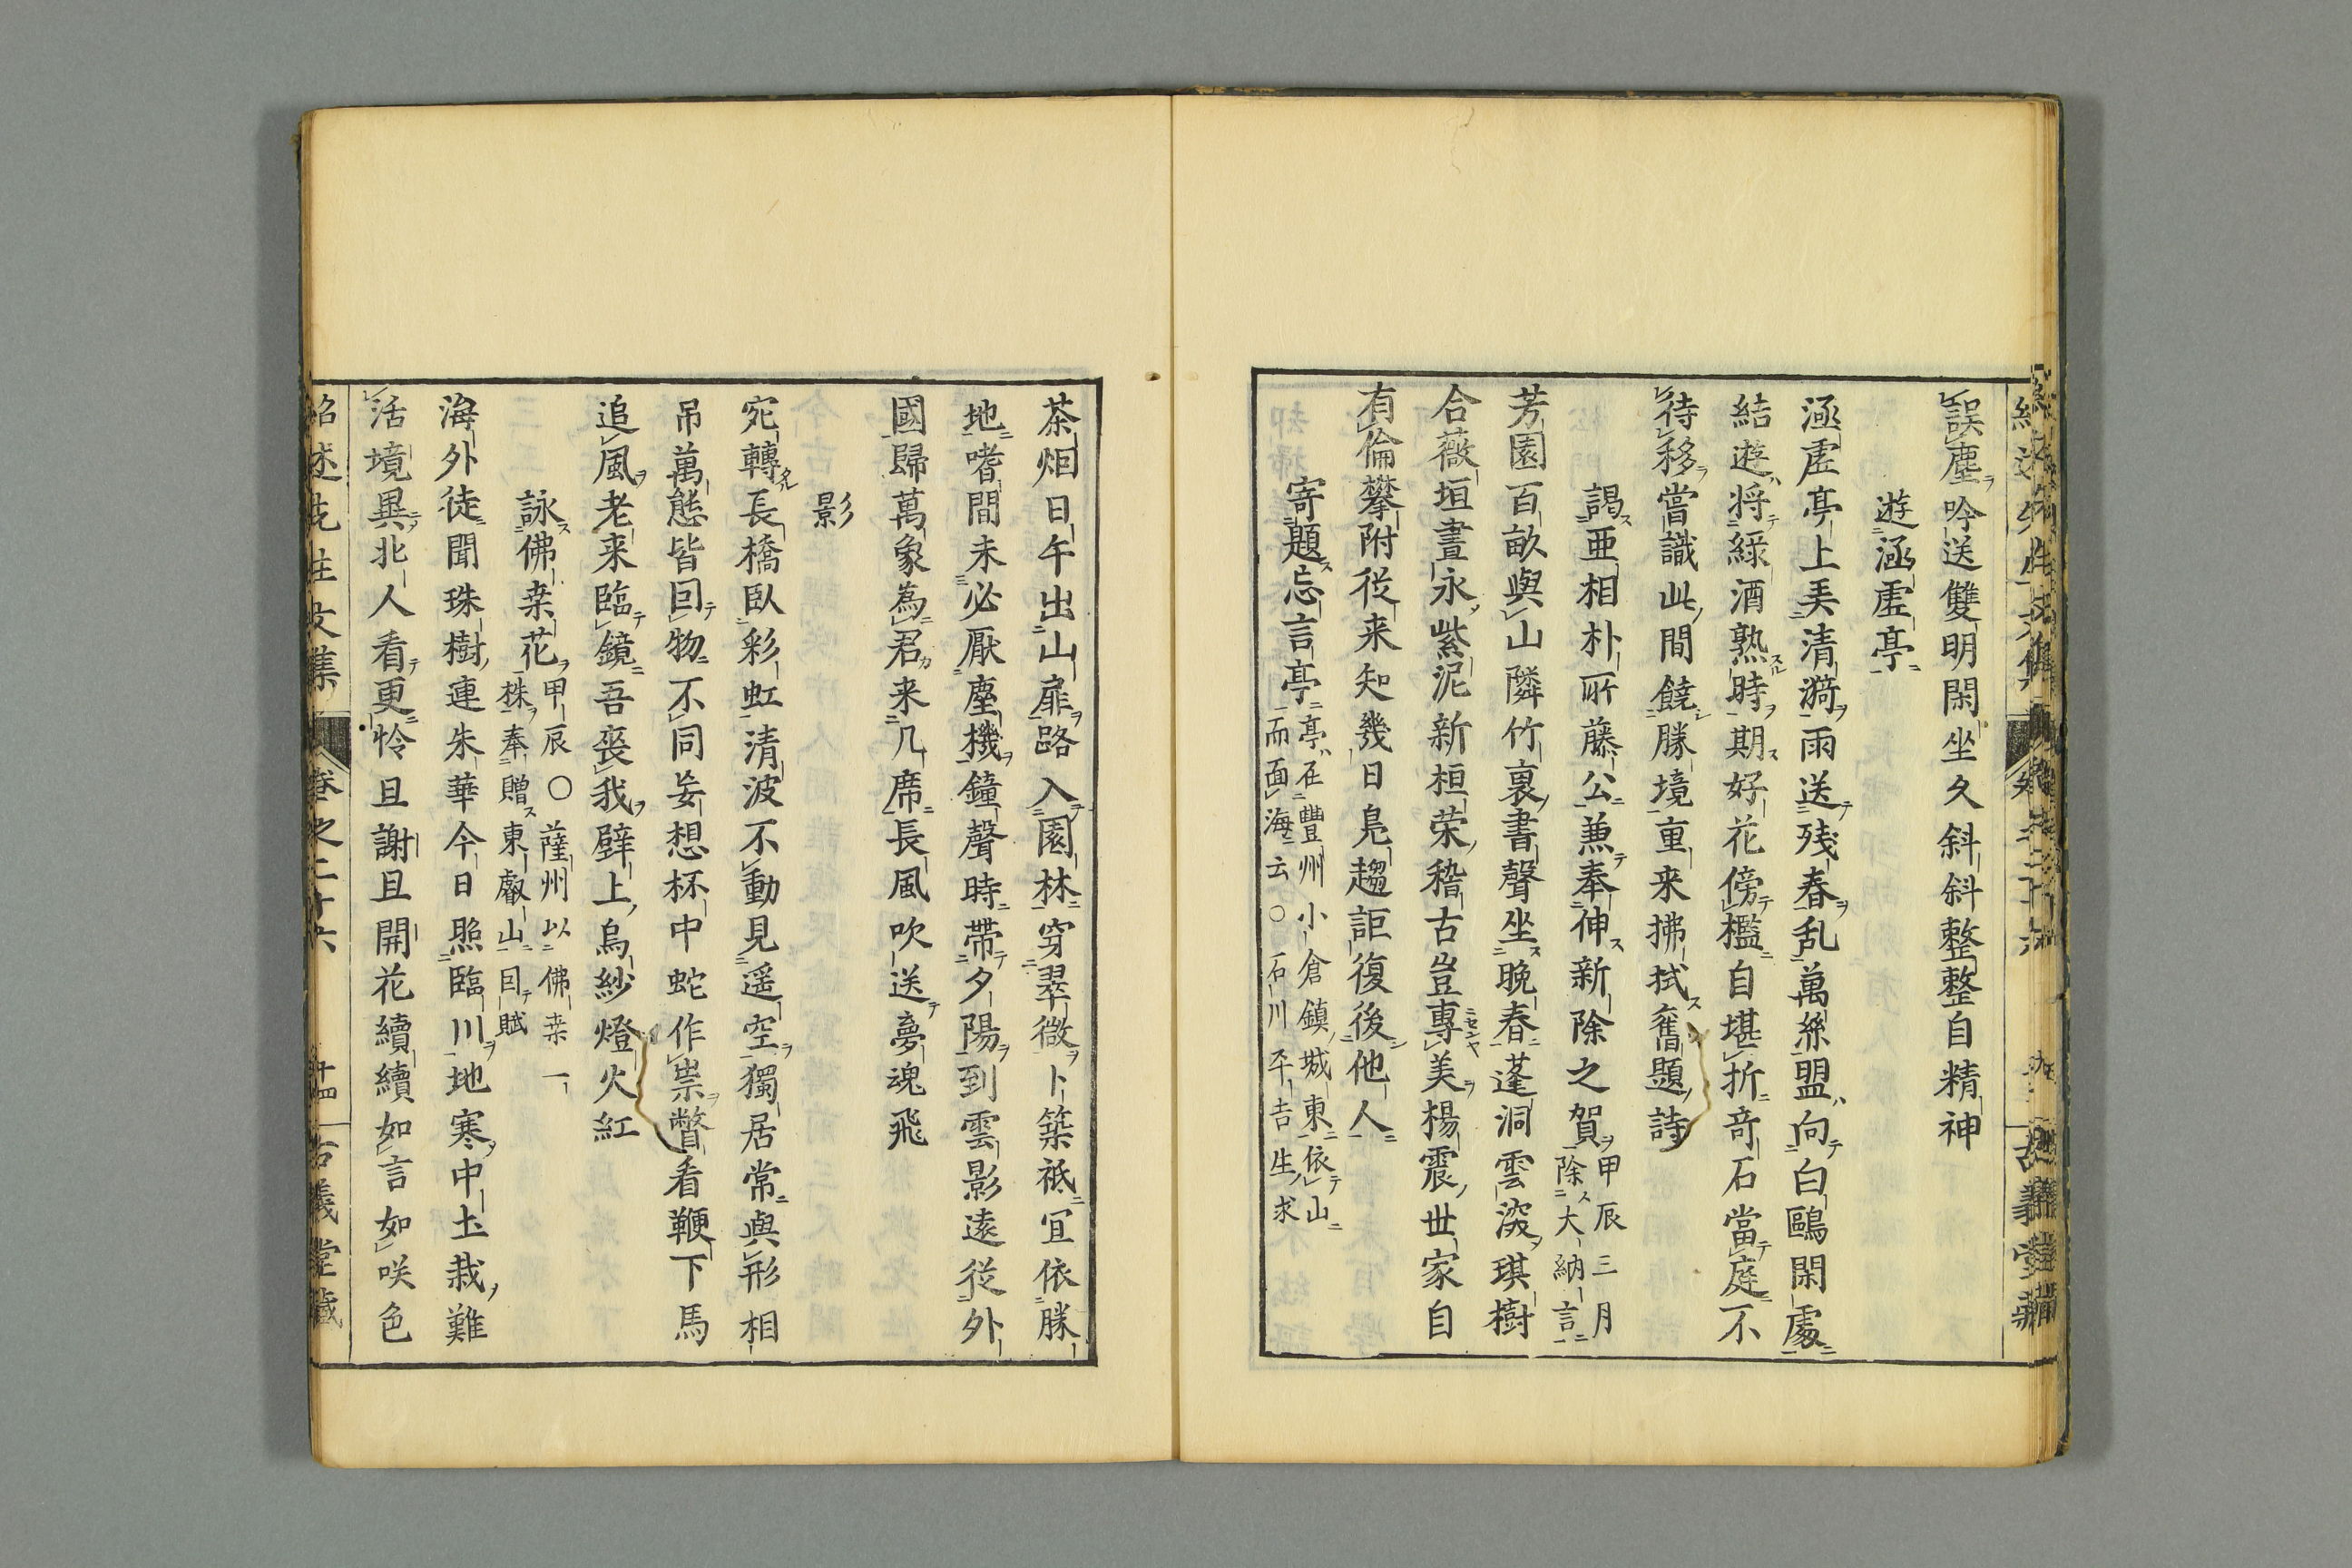 誤塵吟送雙明閑坐久斜斜整整自精神
遊涵虛亭
涵虛亭上弄清漪雨送殘春乱萬絲盟向白鷗閑處
結遊將綠酒熟時期好花傍檻自堪折竒石當庭不
待移嘗識此間饒勝境重来拂拭舊題詩
謁亜相朴所藤公兼奉伸新除之賀甲辰三月
除大納言
芳園百畝與山隣竹裏書聲坐晩春蓬洞雲淡琪樹
合薇垣晝永紫泥新桓荣稽古豈專美楊震世家自
有倫攀附従来知幾日鳧趨詎復後他人
寄題忘言亭亭在豐州小倉鎮城東依山
而面海云○石川平吉生求
茶烟日午出山扉路入園林穿翠微卜築祗宜依勝
地嗜間未必厭塵機鐘聲時帶夕陽到雲影遠従外
國歸萬象為君来几席長風吹送夢魂飛
影
宛轉長橋臥彩虹清波不動見遥空獨居常與形相
吊萬態皆回物不同妄想杯中蛇作祟瞥看鞭下馬
追風老来臨鏡吾喪我壁上烏紗燈火紅
詠佛桒花甲辰○薩州以佛桒一
株奉贈東叡山因賦
海外徒聞珠樹連朱華今日照臨川地寒中土栽難
活境異北人看更怜且謝且開花續續如言如咲色
紹述先生文集 卷之二十六 十四 古義堂藏